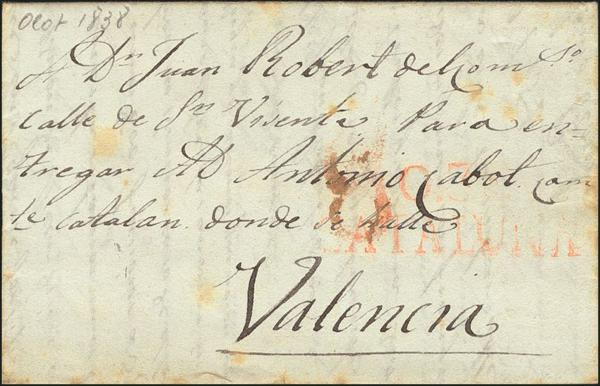 Olot 1838
A Dn Juan Robert del Com.so
Calle de Sn Vicenta Para en-
tregar A D Antonio Cabot. Com
te Catalan donde se halle
CATALUÑA
Valencia